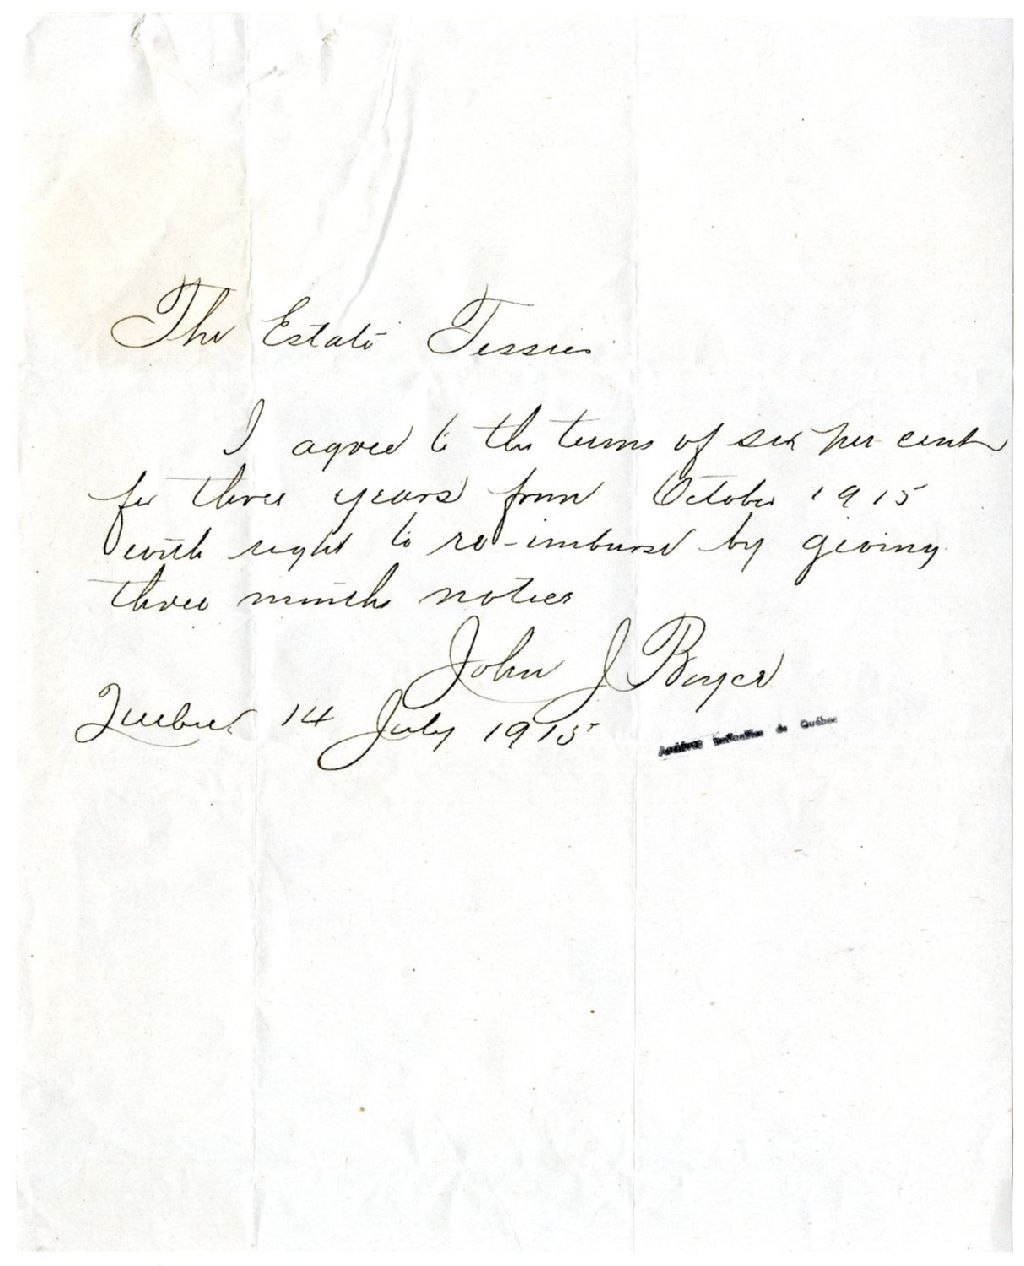 The Estate Tessier
I agree to the terms of six per cent
for three years from October 1915
with right to re-imburse by giving
three months notice
John J Boyer
Quebec 14 July 1915
Archives nationales du Québec